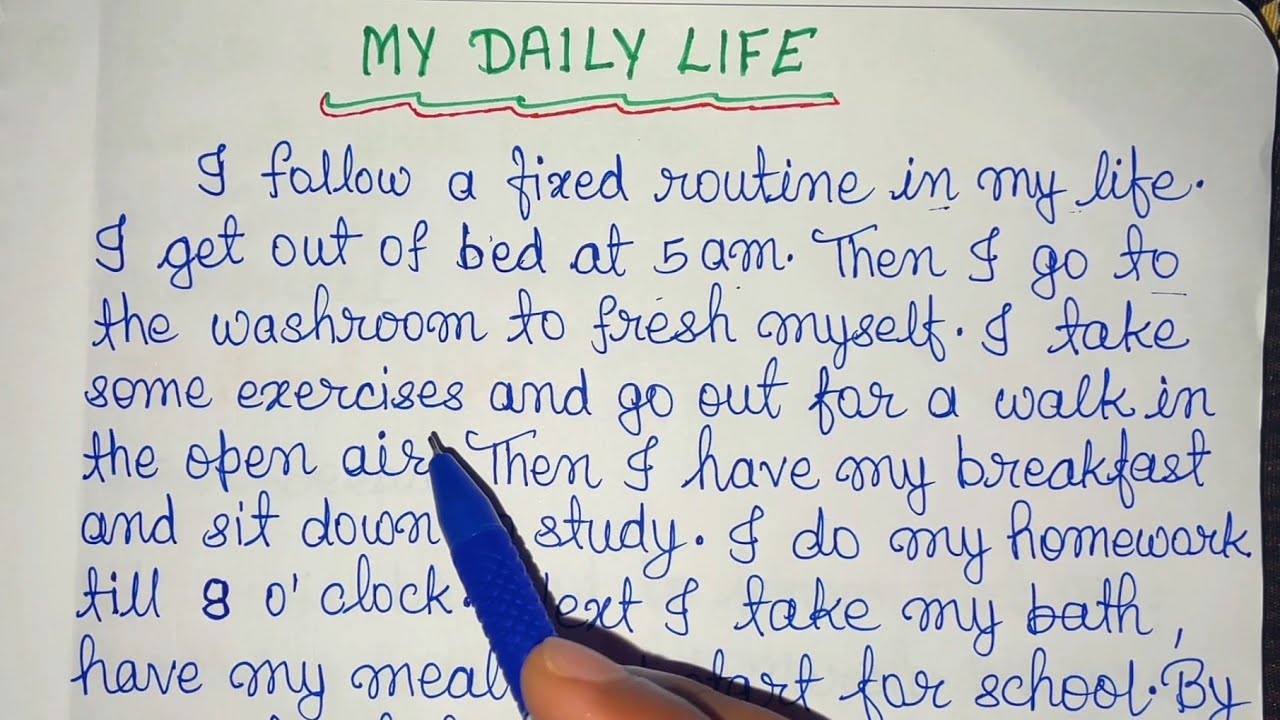 MY DAILY LIFE
I follow a fixed routine in my life.
I get out of bed at 5 am. Then I go to
the washroom to fresh myself. I take
some exercises and go out for a walk in
the open air. Then I have my breakfast
and sit down study. I do my homework
till 8 o'clock. I take my bath,
have my meal for school. By